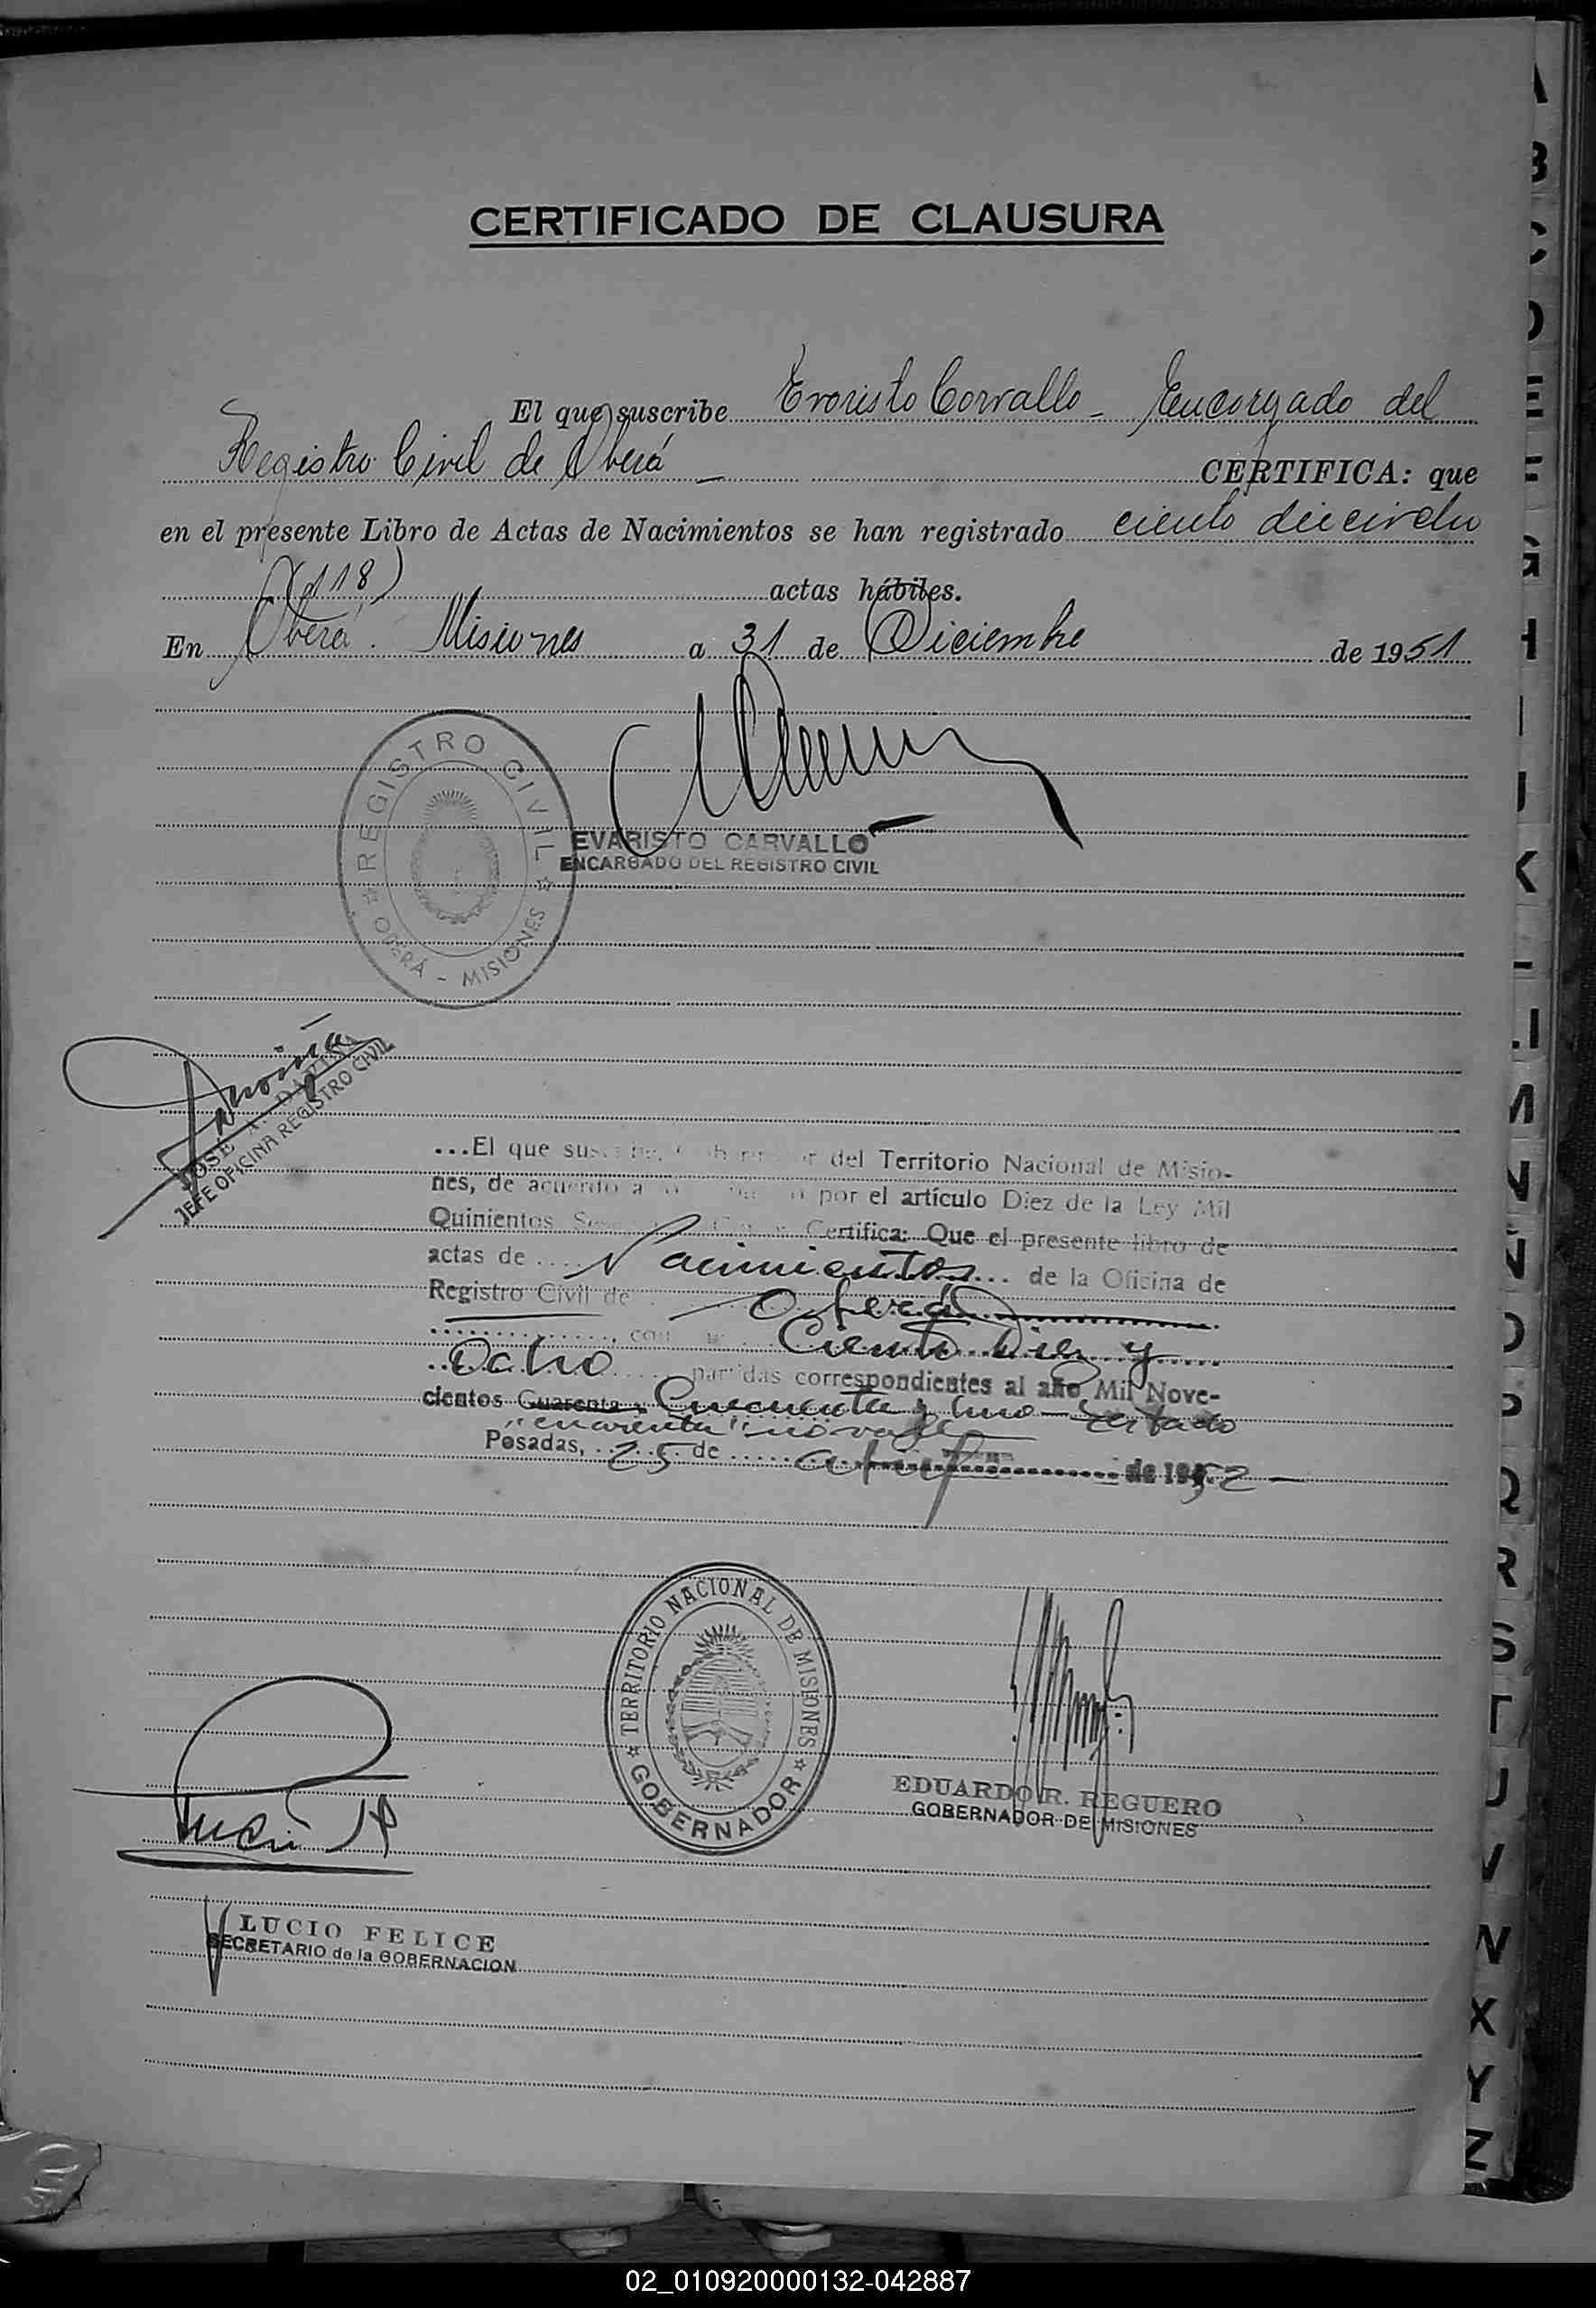 CERTIFICADO DE CLAUSURA
El que suscribe Evaristo Carvallo - Encargado del
Registro Civil de Oberá - CERTIFICA: que
en el presente Libro de Actas de Nacimientos se han registrado ciento dieciocho
(118) actas hábiles.
En Oberá. Misiones a 31 de Diciembre de 1951
REGISTRO CIVIL
OBERÁ - MISIONES
EVARISTO CARVALLO
ENCARGADO DEL REGISTRO CIVIL
JOSÉ A.
JEFE OFICINA REGISTRO CIVIL
...El que del Territorio Nacional de Misio-
nes, de acuerdo a por el artículo Diez de la Ley Mil
Quinientos Certifica: Que el presente libro de
actas de .... Nacimientos ... de la Oficina de
Registro Civil de Oberá
Ciento Diez y
Ocho partidas correspondientes al año Mil Nove-
cientos Cuarenta y Cincuenta y Uno - Testado
"cuarenta" no vale
Posadas, 25 de de 1952 -
TERRITORIO NACIONAL DE MISIONES
GOBERNADOR
EDUARDO R. REGUERO
GOBERNADOR DE MISIONES
LUCIO FELICE
SECRETARIO de la GOBERNACION
A
B
C
D
E
F
G
H
I
J
K
L
LL
M
N
Ñ
O
P
Q
R
S
T
U
V
W
X
Y
Z
02_010920000132-042887